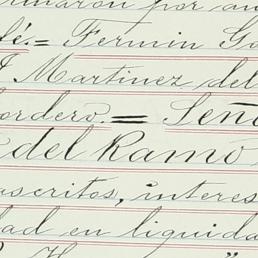 por
fé.= Fermin Go
Martinez del
Cordero.= Seño
del Ramo
ascritos, interes
dad en liquida